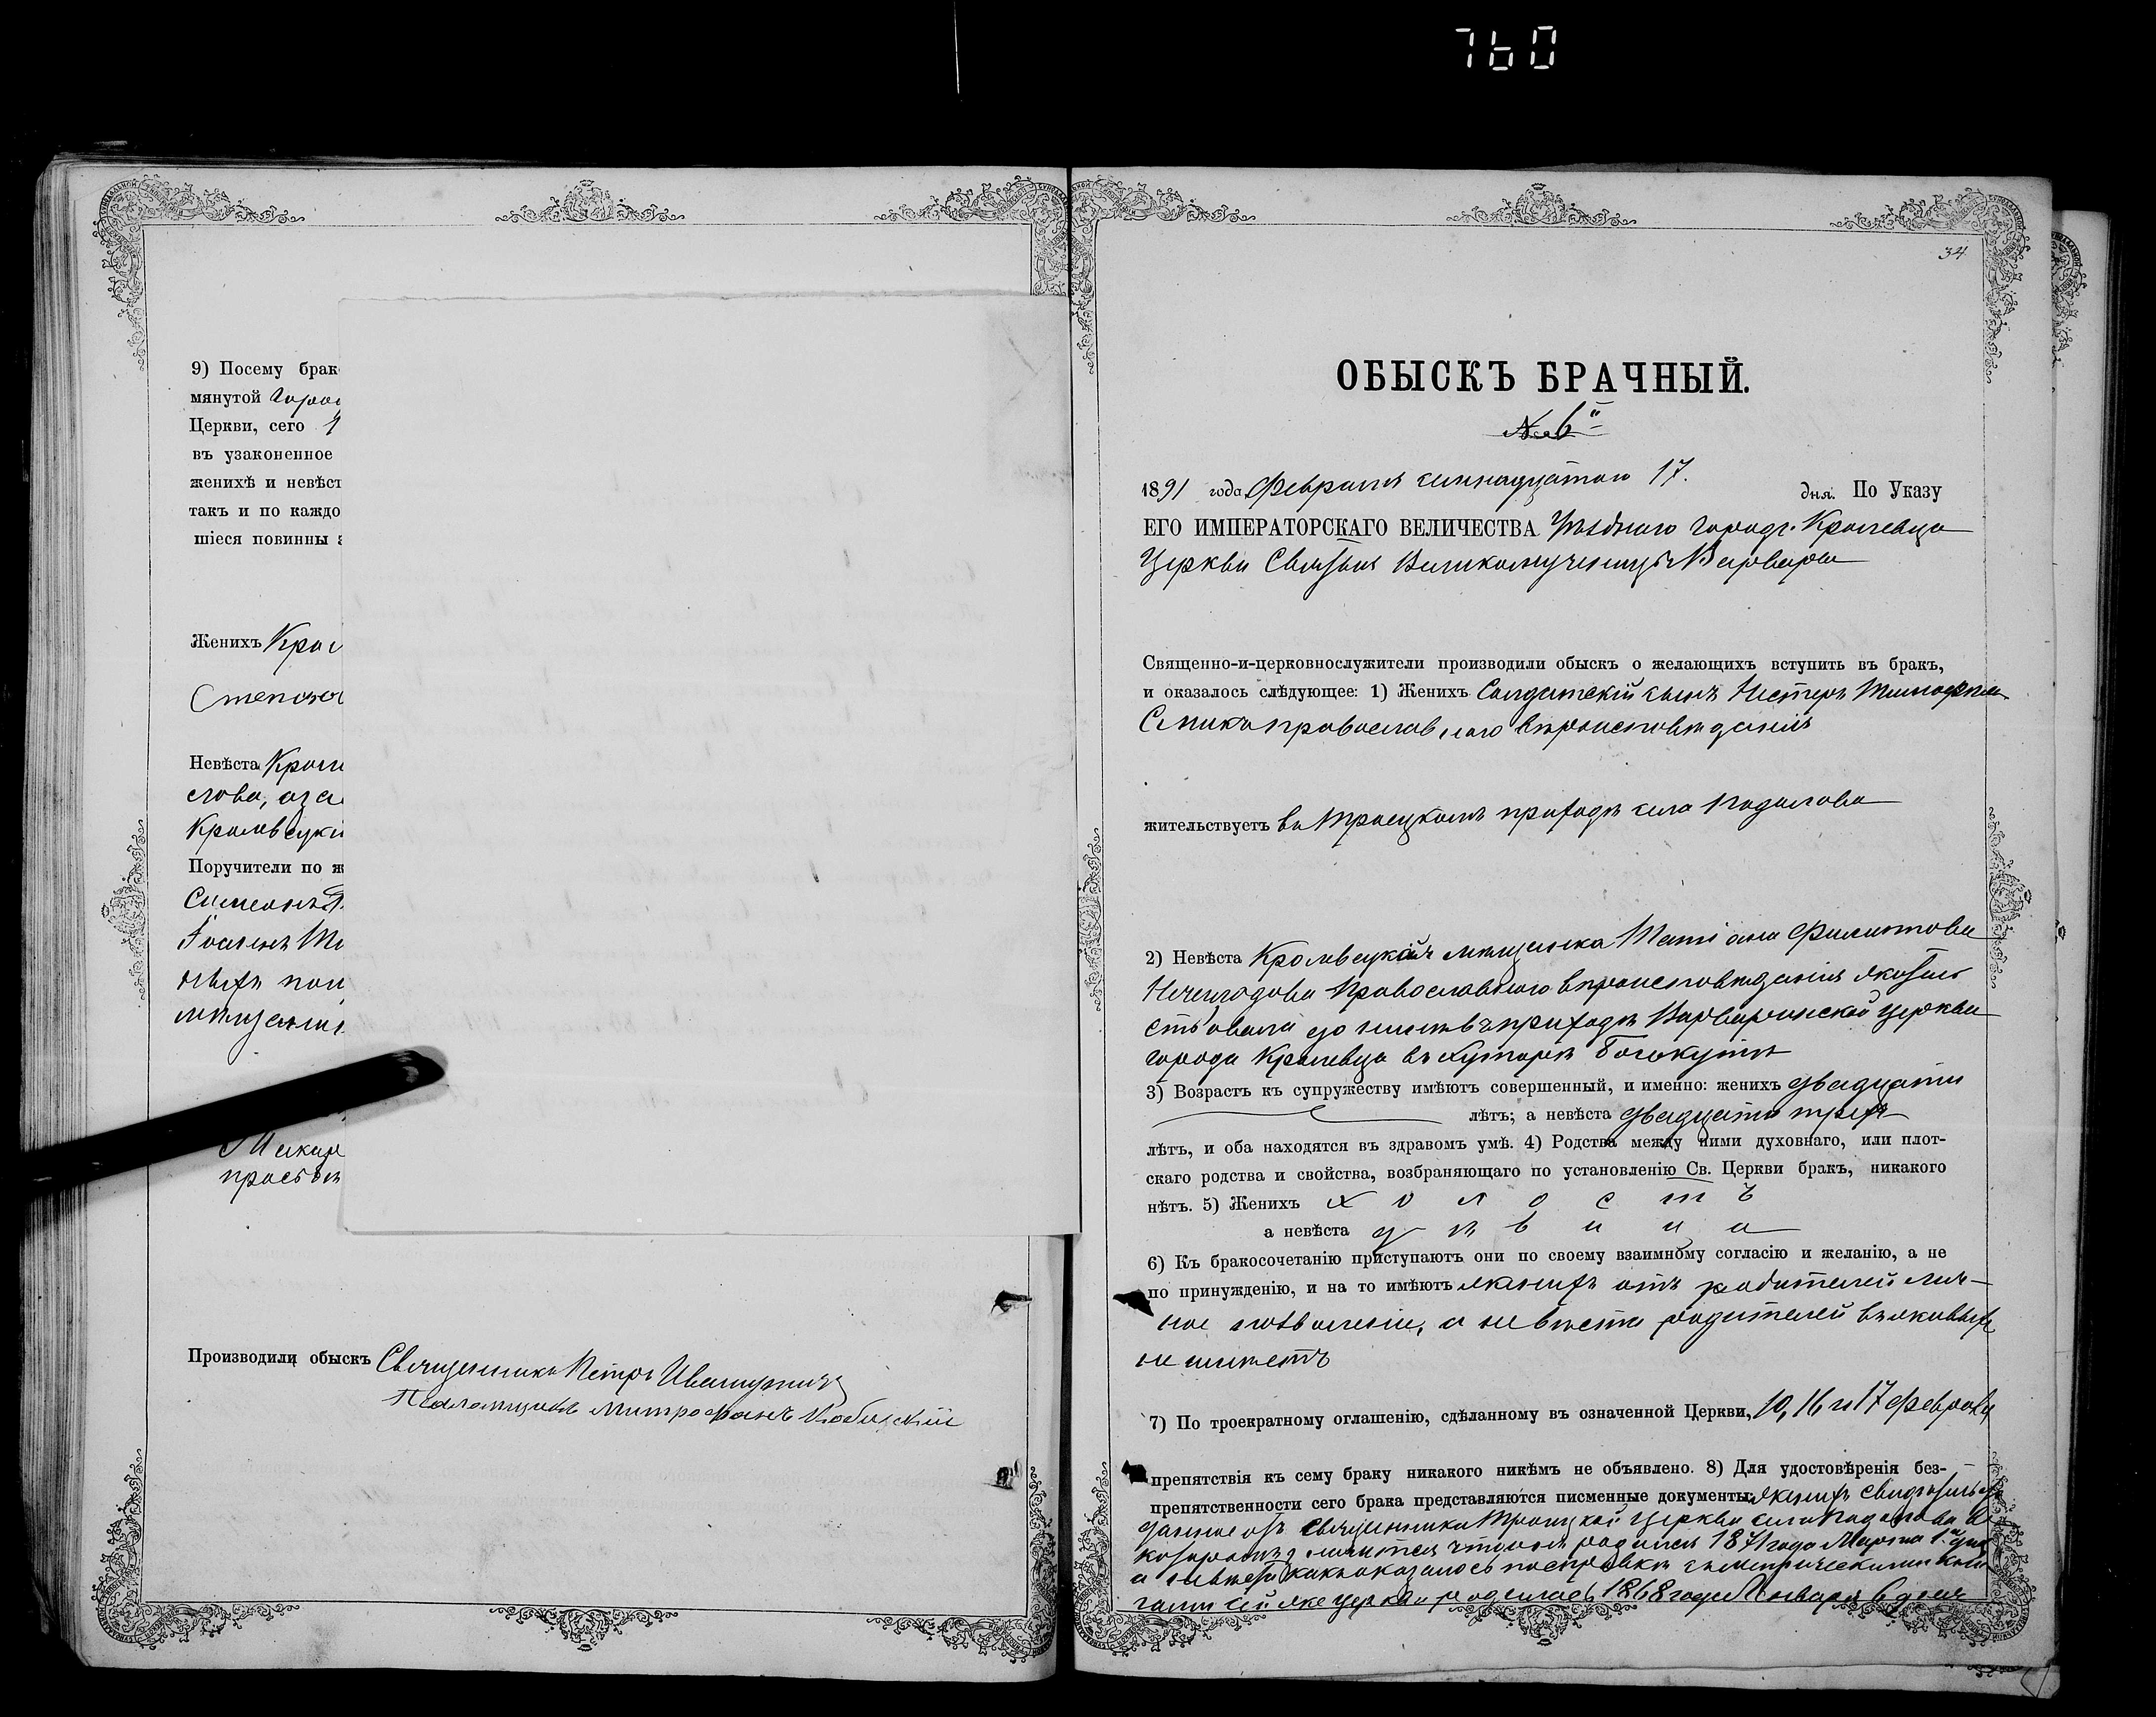 760
9) Посему брак
мянутой
Церкви, сего
въ узаконенное
женихѣ и невѣст
такъ и по каждо
шіеся повинны
Женихъ
Степано
Невѣста
слова,
Кролевецкі
Поручители по ж
Симеонъ
Іоаннъ
мѣщанин
Макар
Производили обыскъ Священникъ Петръ
Псаломщикъ Митрофанъ
34
ОБЫСКЪ БРАЧНЫЙ.
№ 6й
1891 года Февраля семнадцатого 17. дня. По Указу
ЕГО ИМПЕРАТОРСКАГО ВЕЛИЧЕСТВА Уѣзднаго города Кролевца
Церкви Святыя Великомученицы Варвары
Священно-и-церковнослужители производили обыскъ о желающихъ вступить въ бракъ,
и оказалось слѣдующее: 1) Женихъ Солдатскій сынъ Нестеръ
православнаго вѣроисповѣданія
жительствуетъ въ Троецкомъ приходѣ села
2) Невѣста Кролевецкая мѣщанка Татіана Филиппова
Православнаго вѣроисповѣданія
ствовала до ныне въ приходѣ Варваринской церкви
города Кролевца въ хуторѣ
3) Возрастъ къ супружеству имѣютъ совершенный, и именно: женихъ двадцати
лѣтъ; а невѣста двадцати трехъ
лѣтъ, и оба находятся въ здравомъ умѣ. 4) Родства между ними духовнаго, или плот-
скаго родства и свойства, возбраняющаго по установленію Св. Церкви бракъ, никакого
нѣтъ. 5) Женихъ холостъ
а невѣста дѣвица
6) Къ бракосочетанію приступаютъ они по своему взаимному согласію и желанію, а не
по принужденію, и на то имѣютъ женихъ отъ родителей лич-
ное позволеніе, а невѣста родителей въ живыхъ
не имѣетъ
7) По троекратному оглашенію, сдѣланному въ означенной Церкви, 10, 16 и 17 Февраля
препятствія къ сему браку никакого никѣмъ не объявлено. 8) Для удостовѣренія без-
препятственности сего брака представляются писменные документы: женихъ
данное отъ священника Троицкой церкви села
значится что онъ родился 1871 года Марта 1го дня
а невѣста какъ оказалось по справкѣ съ метрическими кни
гами сей же церкви родилась 1868 года Января 6 дня